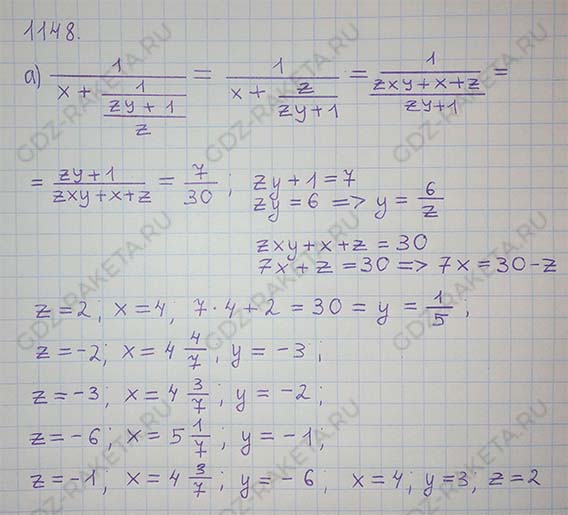 1148.
а) 1/(x + 1/((zy + 1)/z)) = 1/(x + z/(zy+1)) = 1/((zxy+x+z)/(zy+1)) =
= (zy+1)/(zxy+x+z) = 7/30; zy+1=7
zy=6 => y = 6/z
zxy+x+z = 30
7x+z = 30 => 7x = 30-z
z=2; x=4; 7·4+2 = 30 = y = 1/5;
z=-2; x=4 4/7; y = -3;
z=-3; x=4 3/7; y = -2;
z=-6; x=5 1/7; y = -1;
z=-1; x=4 3/7; y=-6; x=4; y=3, z=2
GDZ-RAKETA.RU